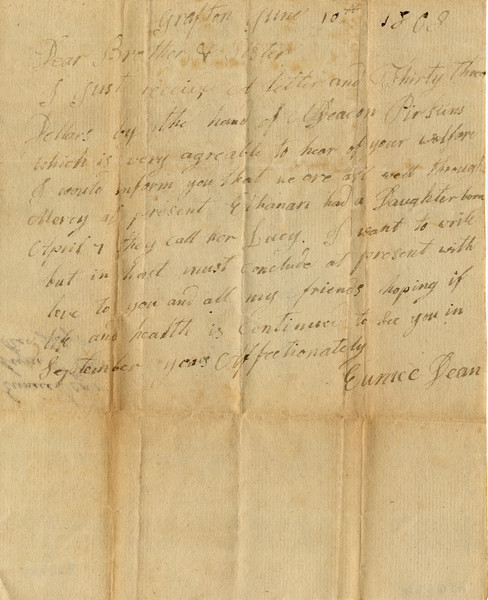 Grafton June 10th 1808
Dear Brother & Sister
I Just receivd A letter and Thirty Three
Dollars by the hand of Deacon Pirsins
which is very agreable to hear of your welfare
I would inform you that we are all well through
Mercy at present Elhanan had a Daughter born
April 7 they call her Lucy. I want to write
but in hast must Conclude at present with
love to you and all my friends hoping if
life and health is Continued to See you in
September yours Affectionately
Eunice Dean